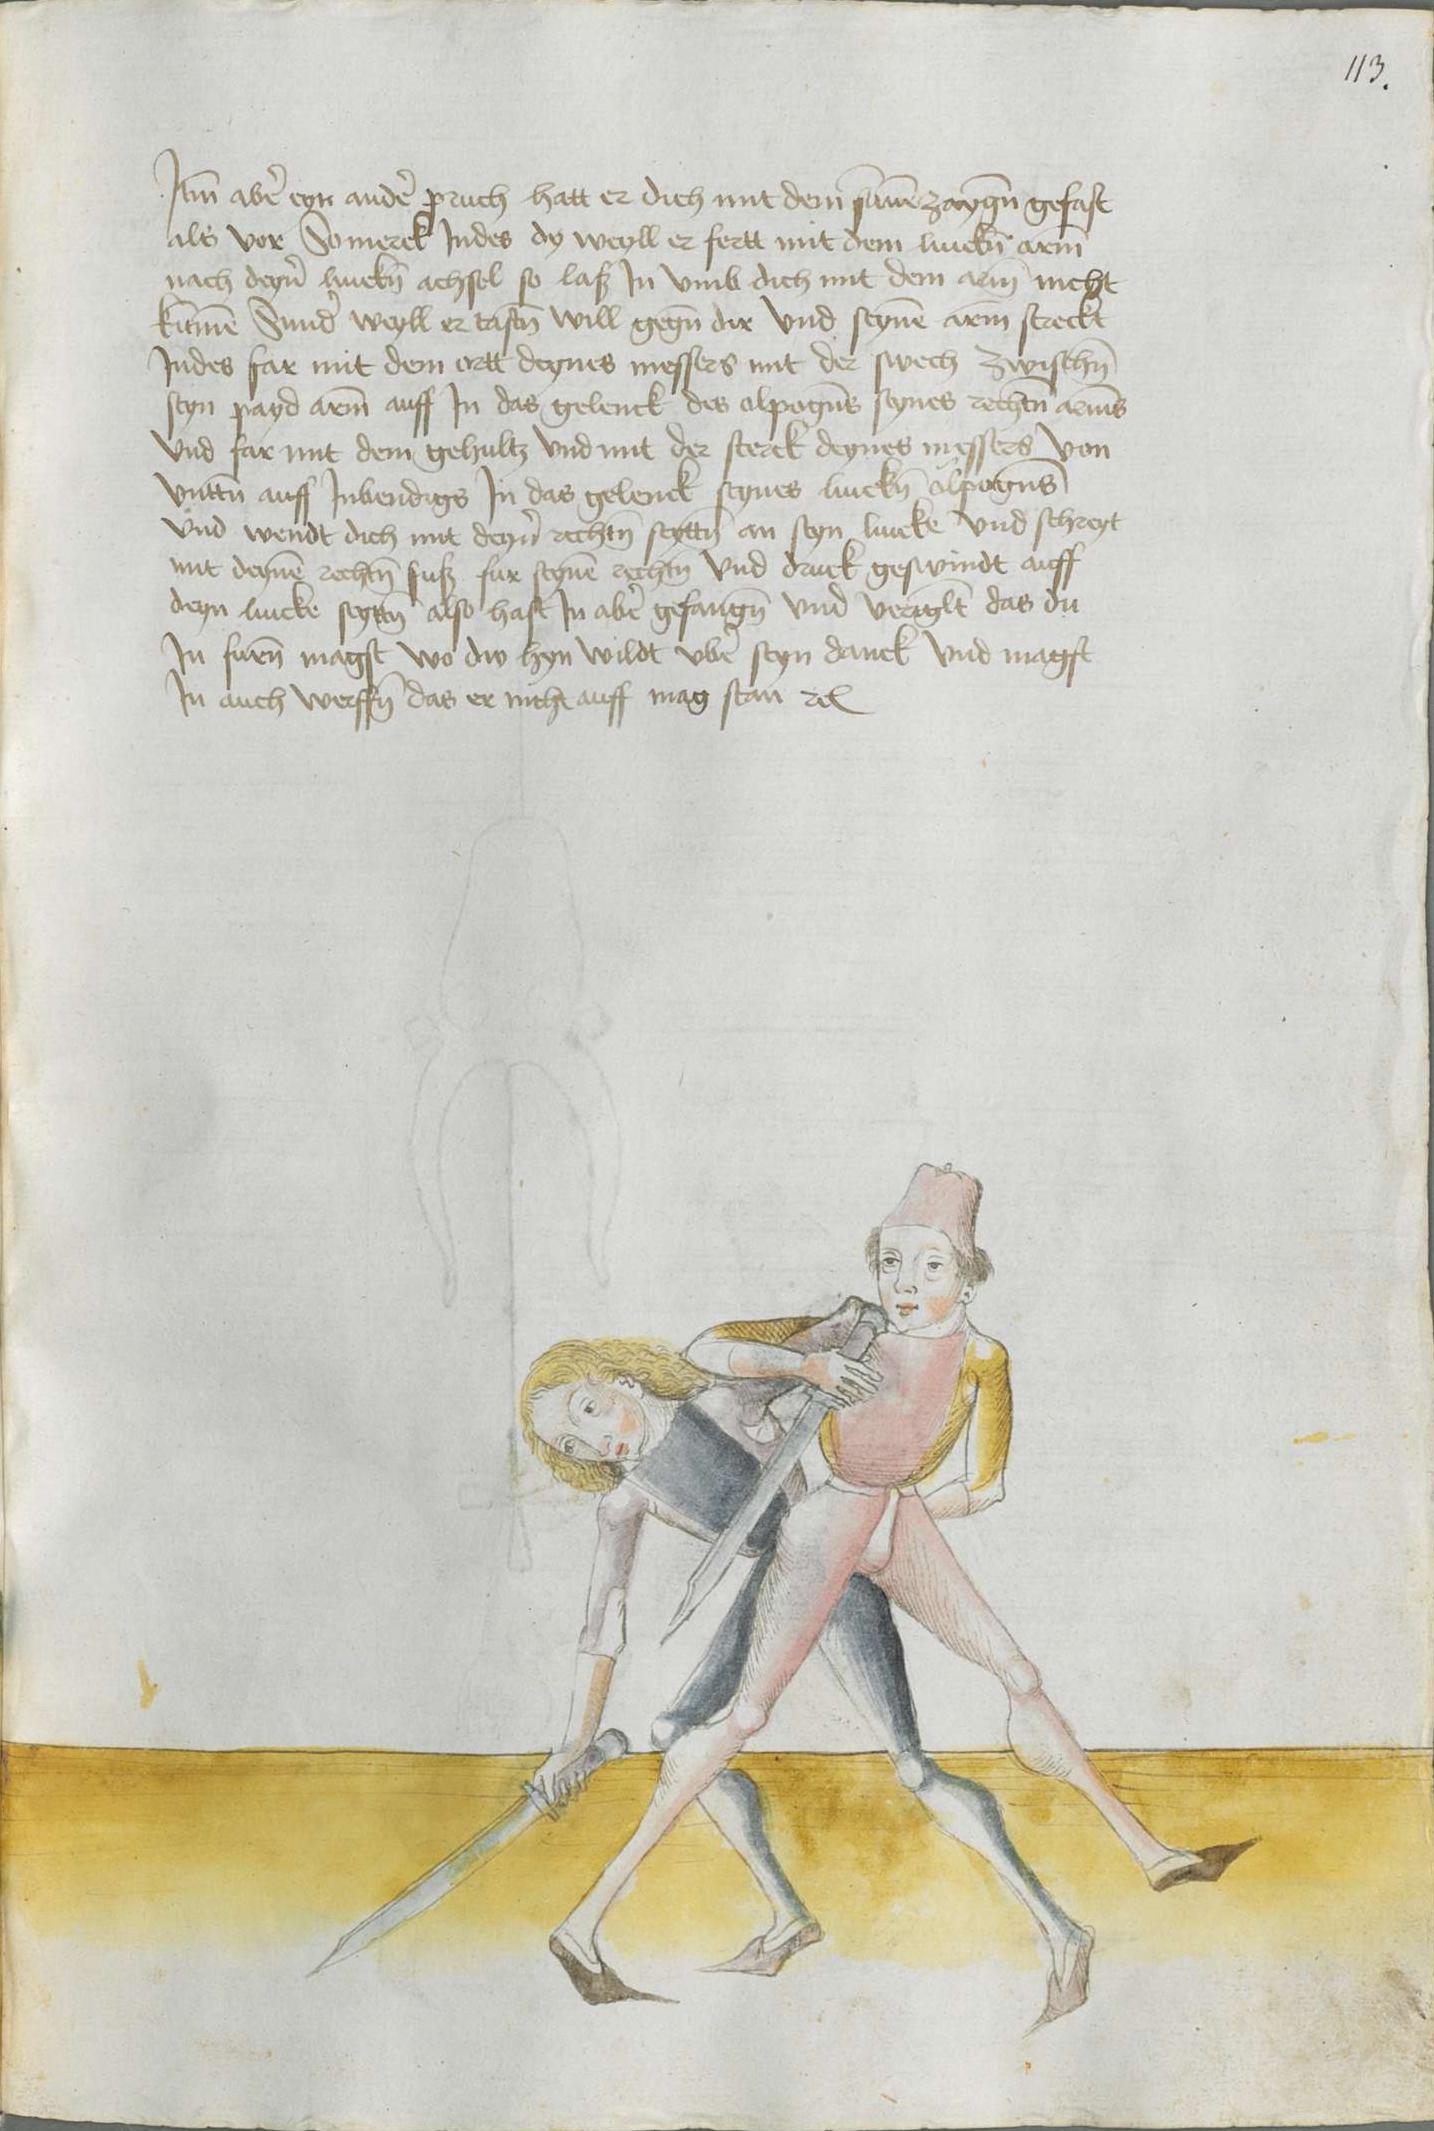 113.
Itm̄ abe᷑ eyn ande᷑ pruch hatt er dich mit dem sunnē zaygn̄ gefast
als vor So merck Indes dy weyll er fertt mit dem linckn̄ arm̄
nach deyn᷑ linckn̄ achsel so laß In vmb dich mit dem arm̄ nicht
kūmē Sund᷑ weyll er tastn̄ will gegn̄ dir vnd seynē arm̄ streckt
Indes far mit dem ortt deynes messers mit der swech zwischn̄
seyn payd arm̄ auff In das gelenck des elpogn̄s seynes rechtn̄ arm̄s
vnd far mit dem gehultz vnd mit der sterck deynes messers von
vnttn̄ auff Inbendigs In das gelenck seynes linckn̄ elpogn̄s
vnd wendt dich mit deyn᷑ rechtn̄ seyttn̄ an seyn lincke vnd schreyt
mit deynē rechtn̄ fuß fur seynē rechtn̄ vnd druck geswindt auff
deyn lincke seyttn̄ also hast In abe᷑ gefangn̄ vnd verriglt das du
In furn̄ magst wo dw hyn wildt vbe᷑ seyn danck vnd magst
In auch werffn̄ das er nicht auff mag stan rc